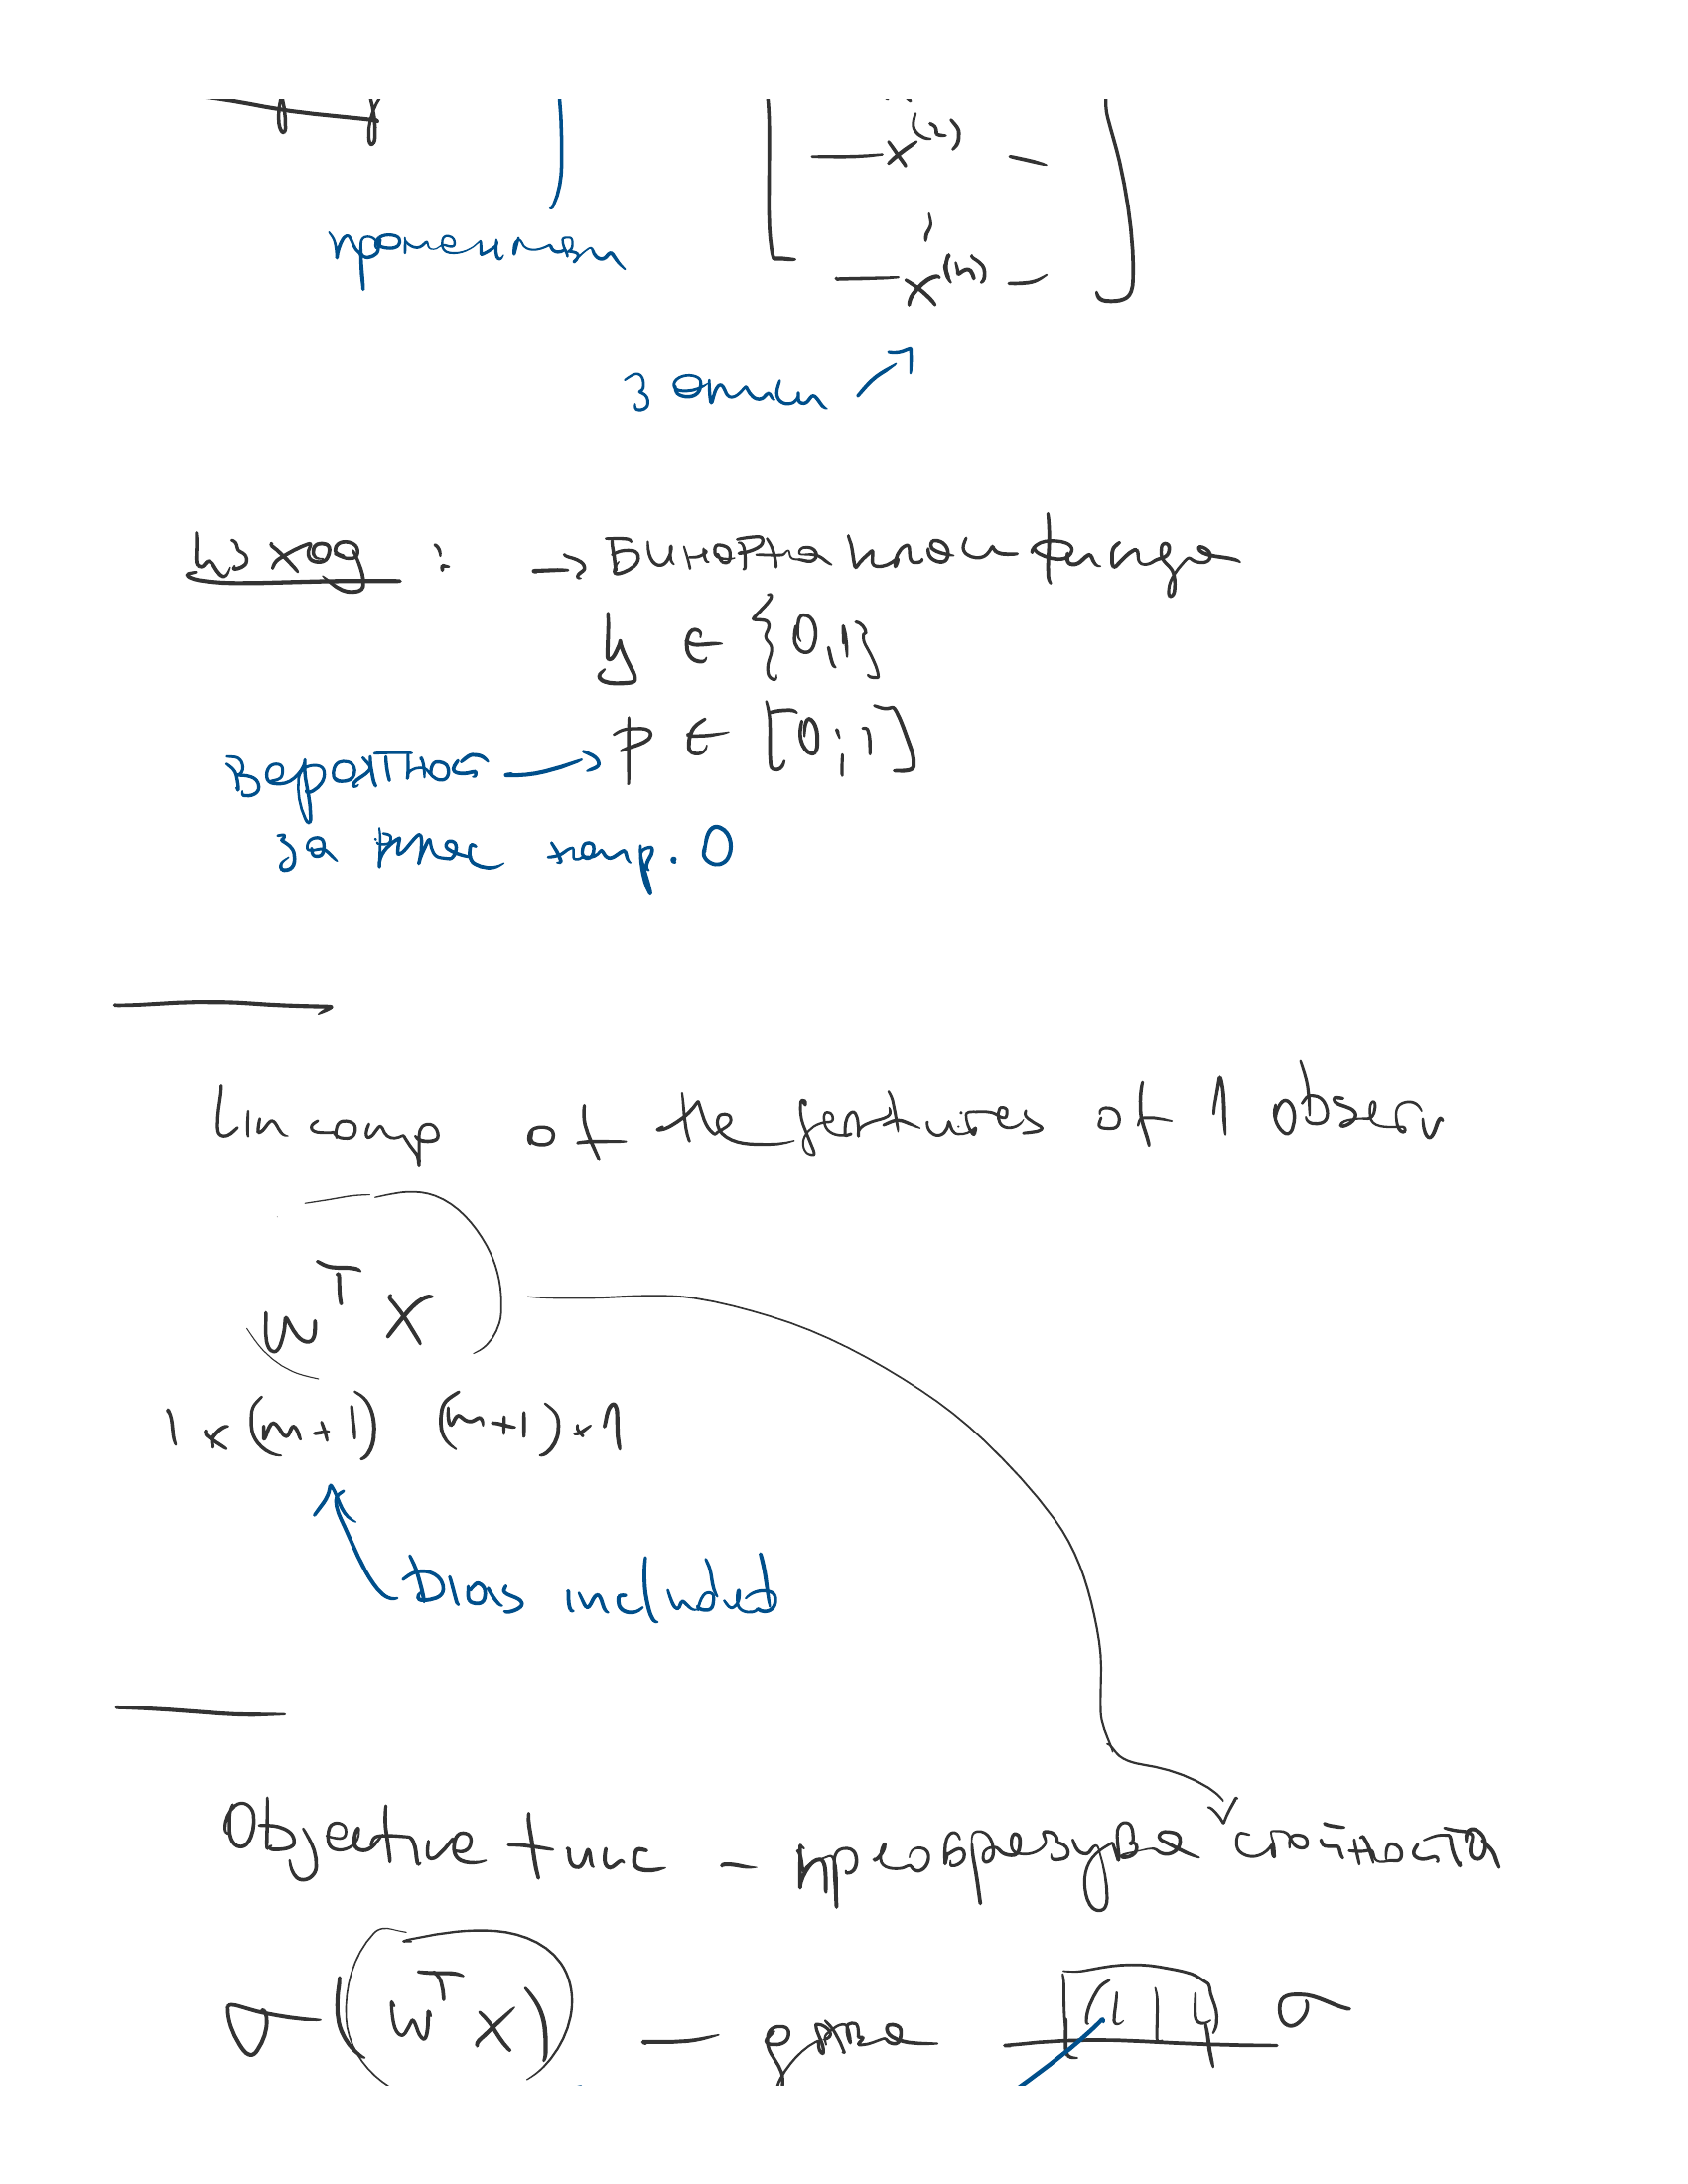 — x⁽²⁾ —
променливи
— x⁽ⁿ⁾ —
записи ↗
Изход : → Бинарна класификация
y ∈ {0,1}
p ∈ [0;1]
Вероятност →
за клас напр. 0
Lin comp of the features of 1 observ
wᵀ x
1 x (m+1) (m+1) x 1
bias included
Objective func - преобразува стойността
σ(wᵀ x) — σ